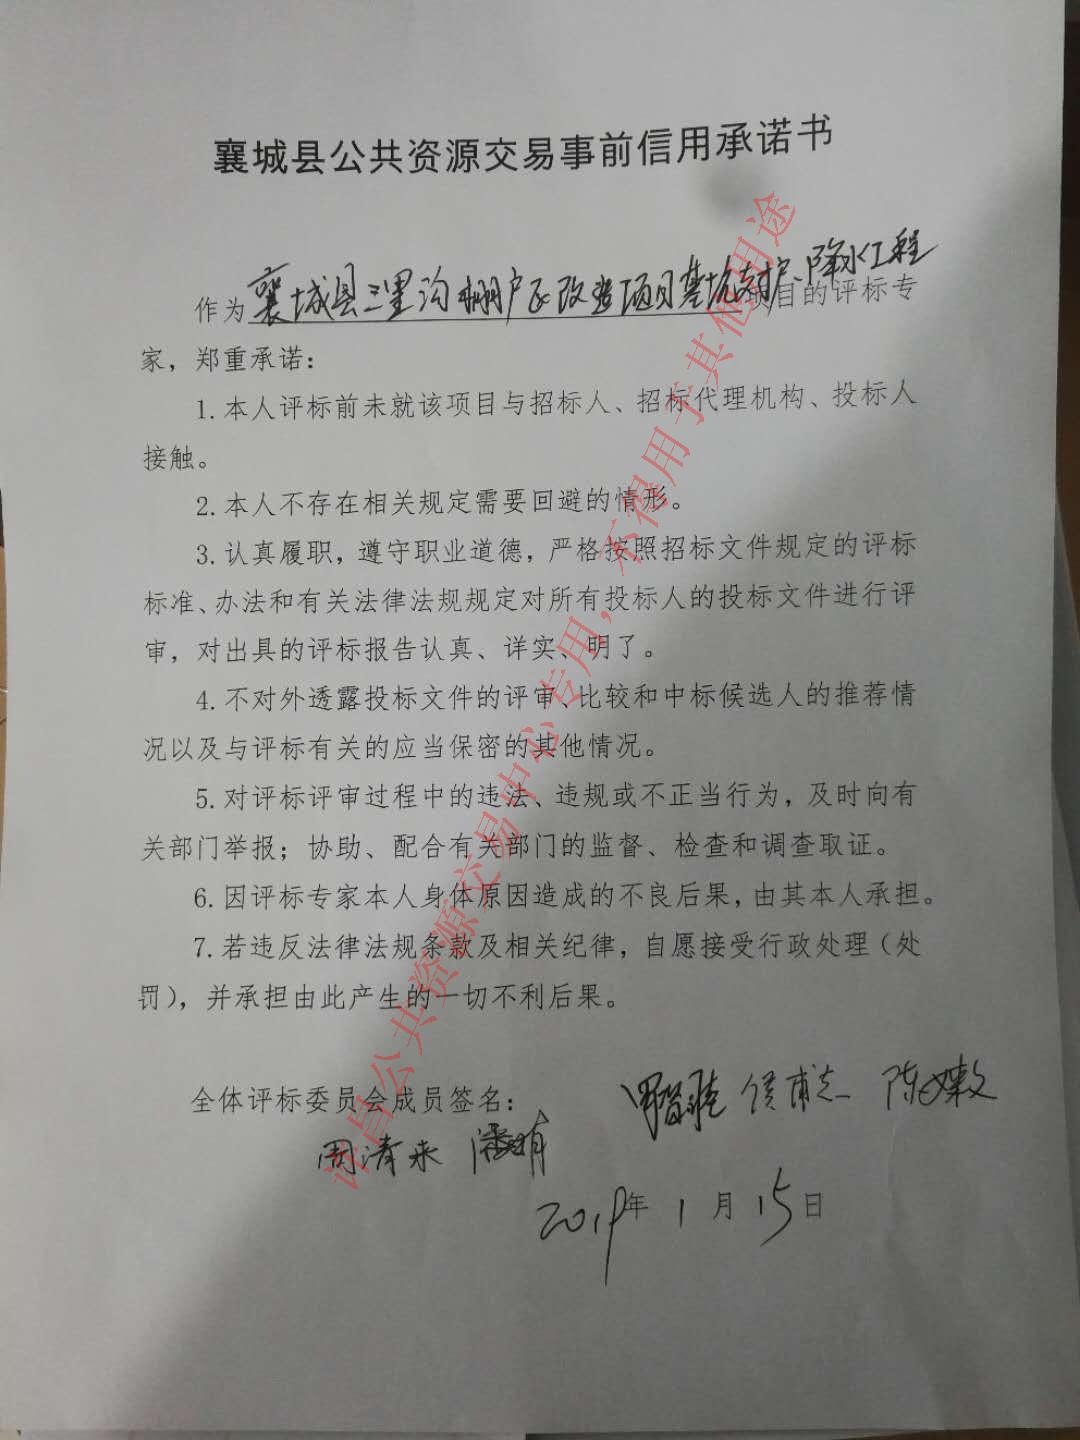 襄城县公共资源交易事前信用承诺书
作为襄城县三里沟棚户区改造项目基坑支护、降水工程项目的评标专
家，郑重承诺：
1.本人评标前未就该项目与招标人、招标代理机构、投标人
接触。
2.本人不存在相关规定需要回避的情形。
3.认真履职，遵守职业道德，严格按照招标文件规定的评标
标准、办法和有关法律法规规定对所有投标人的投标文件进行评
审，对出具的评标报告认真、详实、明了。
4.不对外透露投标文件的评审、比较和中标候选人的推荐情
况以及与评标有关的应当保密的其他情况。
5.对评标评审过程中的违法、违规或不正当行为，及时向有
关部门举报；协助、配合有关部门的监督、检查和调查取证。
6.因评标专家本人身体原因造成的不良后果，由其本人承担。
7.若违反法律法规条款及相关纪律，自愿接受行政处理（处
罚），并承担由此产生的一切不利后果。
全体评标委员会成员签名：
周清来
2019年1月15日
许昌公共资源交易中心专用，不得用于其他用途